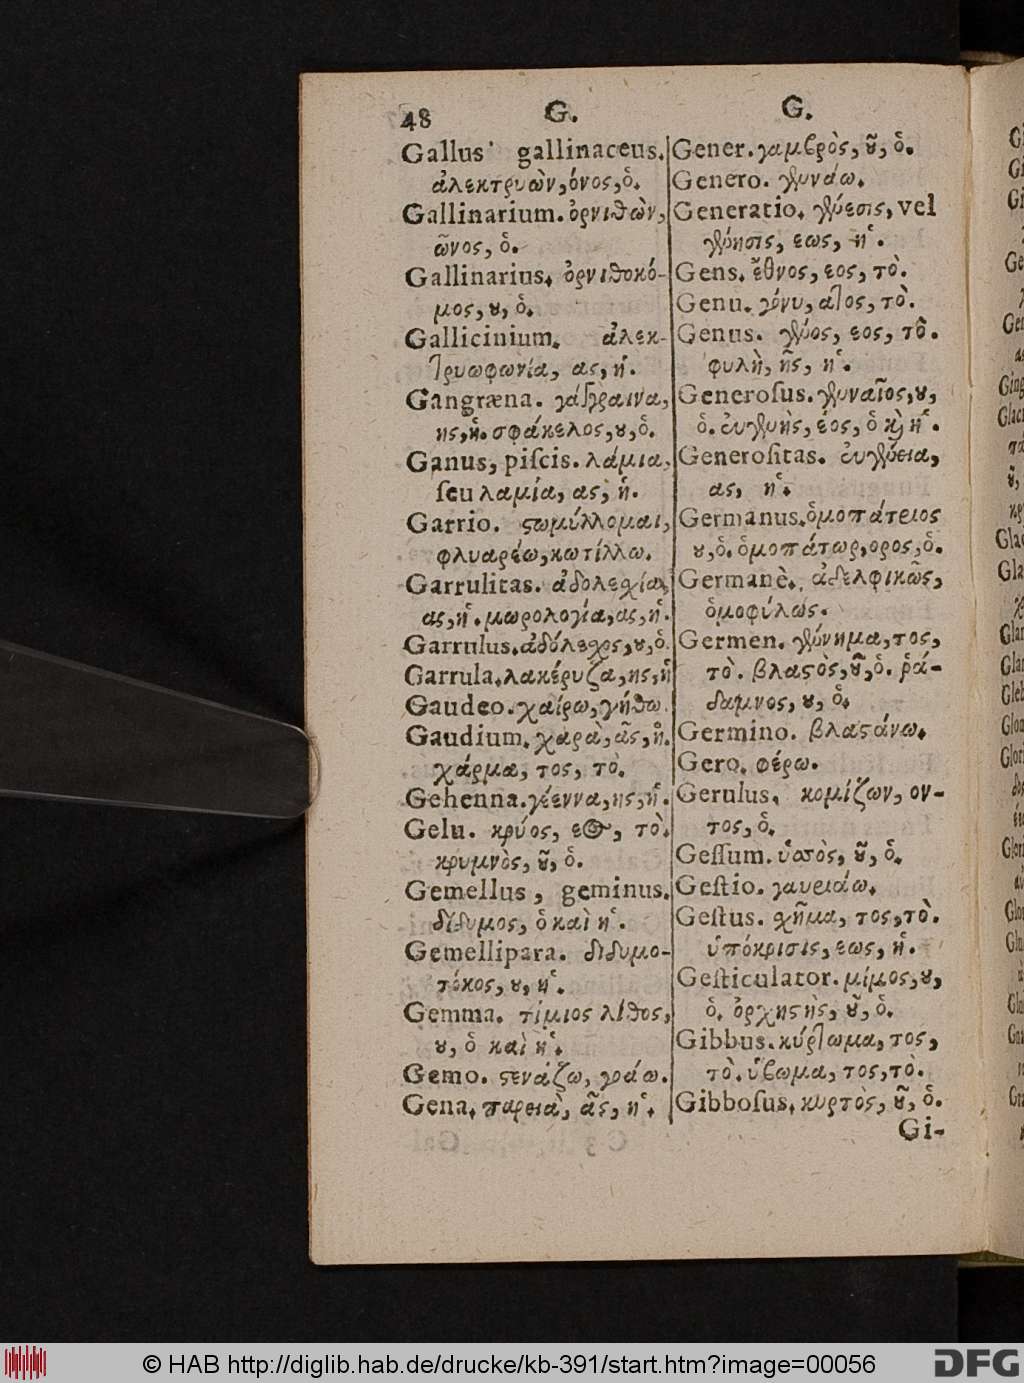 48 G. G.
Gallus gallinaceus.
ἀλεκτρυὼν, όνος, ὁ.
Gallinarium. ὀρνιθὼν,
ῶνος, ὁ.
Gallinarius. ὀρνιθοκό-
μος, ȣ, ὁ.
Gallicinium. ἀλεκ-
τρυωφωνία, ας, ἡ.
Gangræna. γάγγραινα,
ης, ἡ. σφάκελος, ȣ, ὁ.
Ganus, piſcis. λάμια,
ſeu λαμία, ας, ἡ.
Garrio. ϛωμύλλομαι,
φλυαρέω, κωτίλλω.
Garrulitas. ἀδολεχία,
ας, ἡ. μωρολογία, ας, ἡ.
Garrulus. ἀδόλεχος, ȣ, ὁ.
Garrula. λακέρυζα, ης, ἡ
Gaudeo. χαίρω, γήθω.
Gaudium. χαρὰ, ᾶς, ἡ.
χάρμα, τος, τὸ.
Gehenna. γέεννα, ης, ἡ.
Gelu. κρύος, εος, τὸ.
κρυμνὸς, ȣ͂, ὁ.
Gemellus, geminus.
δίδυμος, ὁ καὶ ἡ.
Gemellipara. διδυμο-
τόκος, ȣ, ἡ.
Gemma. τίμιος λίθος,
ȣ, ὁ καὶ ἡ.
Gemo. ϛενάζω, γοάω.
Gena. παρειὰ, ᾶς, ἡ.
Gener. γαμβρὸς, ȣ͂, ὁ.
Genero. γεννάω.
Generatio. γένεσις, vel
γέννησις, εως, ἡ.
Gens. ἔθνος, εος, τὸ.
Genu. γόνυ, ατος, τὸ.
Genus. γένος, εος, τὸ.
φυλὴ, ῆς, ἡ.
Generoſus. γενναῖος, ȣ,
ὁ. ἐυγενὴς, έος, ὁ ϗ ἡ.
Generoſitas. ἐυγένεια,
ας, ἡ.
Germanus. ὁμοπάτριος
ȣ, ὁ. ὁμοπάτωρ, ορος, ὁ.
Germanè. ἀδελφικῶς,
ὁμοφύλως.
Germen. γέννημα, τος,
τὸ. βλαϛὸς, ȣ͂, ὁ. ῥά-
δαμνος, ȣ, ὁ.
Germino. βλαϛάνω.
Gero. φέρω.
Gerulus. κομίζων, ον-
τος, ὁ.
Geſſum. ὑσσὸς, ȣ͂, ὁ.
Geſtio. γαυριάω.
Geſtus. σχῆμα, τος, τὸ.
ὑπόκρισις, εως, ἡ.
Geſticulator. μίμος, ȣ,
ὁ. ὀρχηϛὴς, ȣ͂, ὁ.
Gibbus. κύρτωμα, τος,
τὸ. ὕβωμα, τος, τὸ.
Gibboſus. κυρτὸς, ȣ͂, ὁ.
Gi-
© HAB http://diglib.hab.de/drucke/kb-391/start.htm?image=00056
DFG